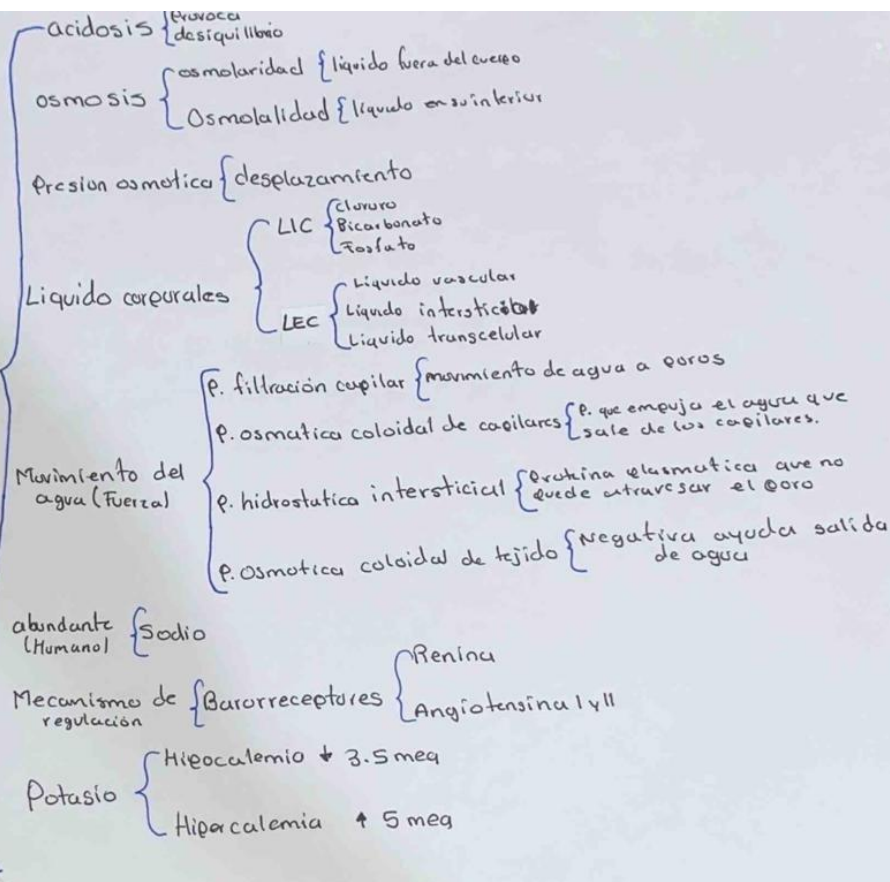 acidosis { Provoca
desiquilibrio
osmosis { osmolaridad { liquido fuera del cuerpo
Osmolalidad { liquido en su interior
Presion osmotica { desplazamiento
Liquido corporales { LIC { Cloruro
Bicarbonato
Fosfato
LEC { Liquido vascular
Liquido intersticial
Liquido transcelular
Movimiento del
agua (Fuerza)
P. filtración capilar { movimiento de agua a poros
P. osmotica coloidal de capilares { P. que empuja el agua que
sale de los capilares.
P. hidrostatica intersticial { Protina plasmatica que no
puede atravesar el poro
P. Osmotica coloidal de tejido { Negativa ayuda salida
de agua
abundante
(Humano) { Sodio
Mecanismo de
regulación { Barorreceptores { Renina
Angiotensina I y II
Potasio { Hipocalemio ↓ 3.5 meq
Hipercalemia ↑ 5 meq